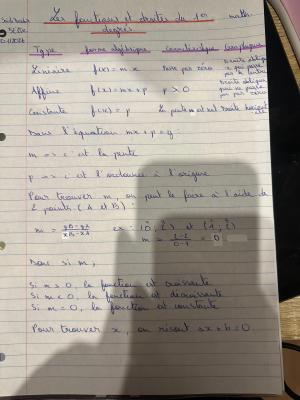 Les fonctions et droites du 1er degrés
maths
Type forme algébrique caractéristique Graphique
Linéaire f(x) = mx Passe par zéro Droite oblique qui passe par le centre
Affine f(x) = mx + p p > 0 Droite oblique qui ne passe pas par zéro
Constante f(x) = p La pente est nul Droite horizontale
Dans l'équation mx + p = y
m => c'est la pente
p => c'est l'ordonnée à l'origine
Pour trouver m, on peut le faire à l'aide de
2 points (A et B) :
m = yB - yA / xB - xA ex : (0, 2) et (1, 2)
m = 2-2 / 0-1 = 0
Donc si m,
Si m > 0, la fonction est croissante
Si m < 0, la fonction est décroissante
Si m = 0, la fonction est constante
Pour trouver x, on résout ax + b = 0